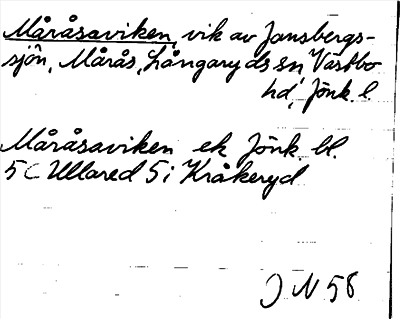 Måråsaviken, vik av Jansbergs-
sjön, Mårås, Långaryds sn, Västbo
hd, Jönk. l.
Måråsaviken ek Jönk. bl.
5C Ullared 5i Kråkeryd
J N 58